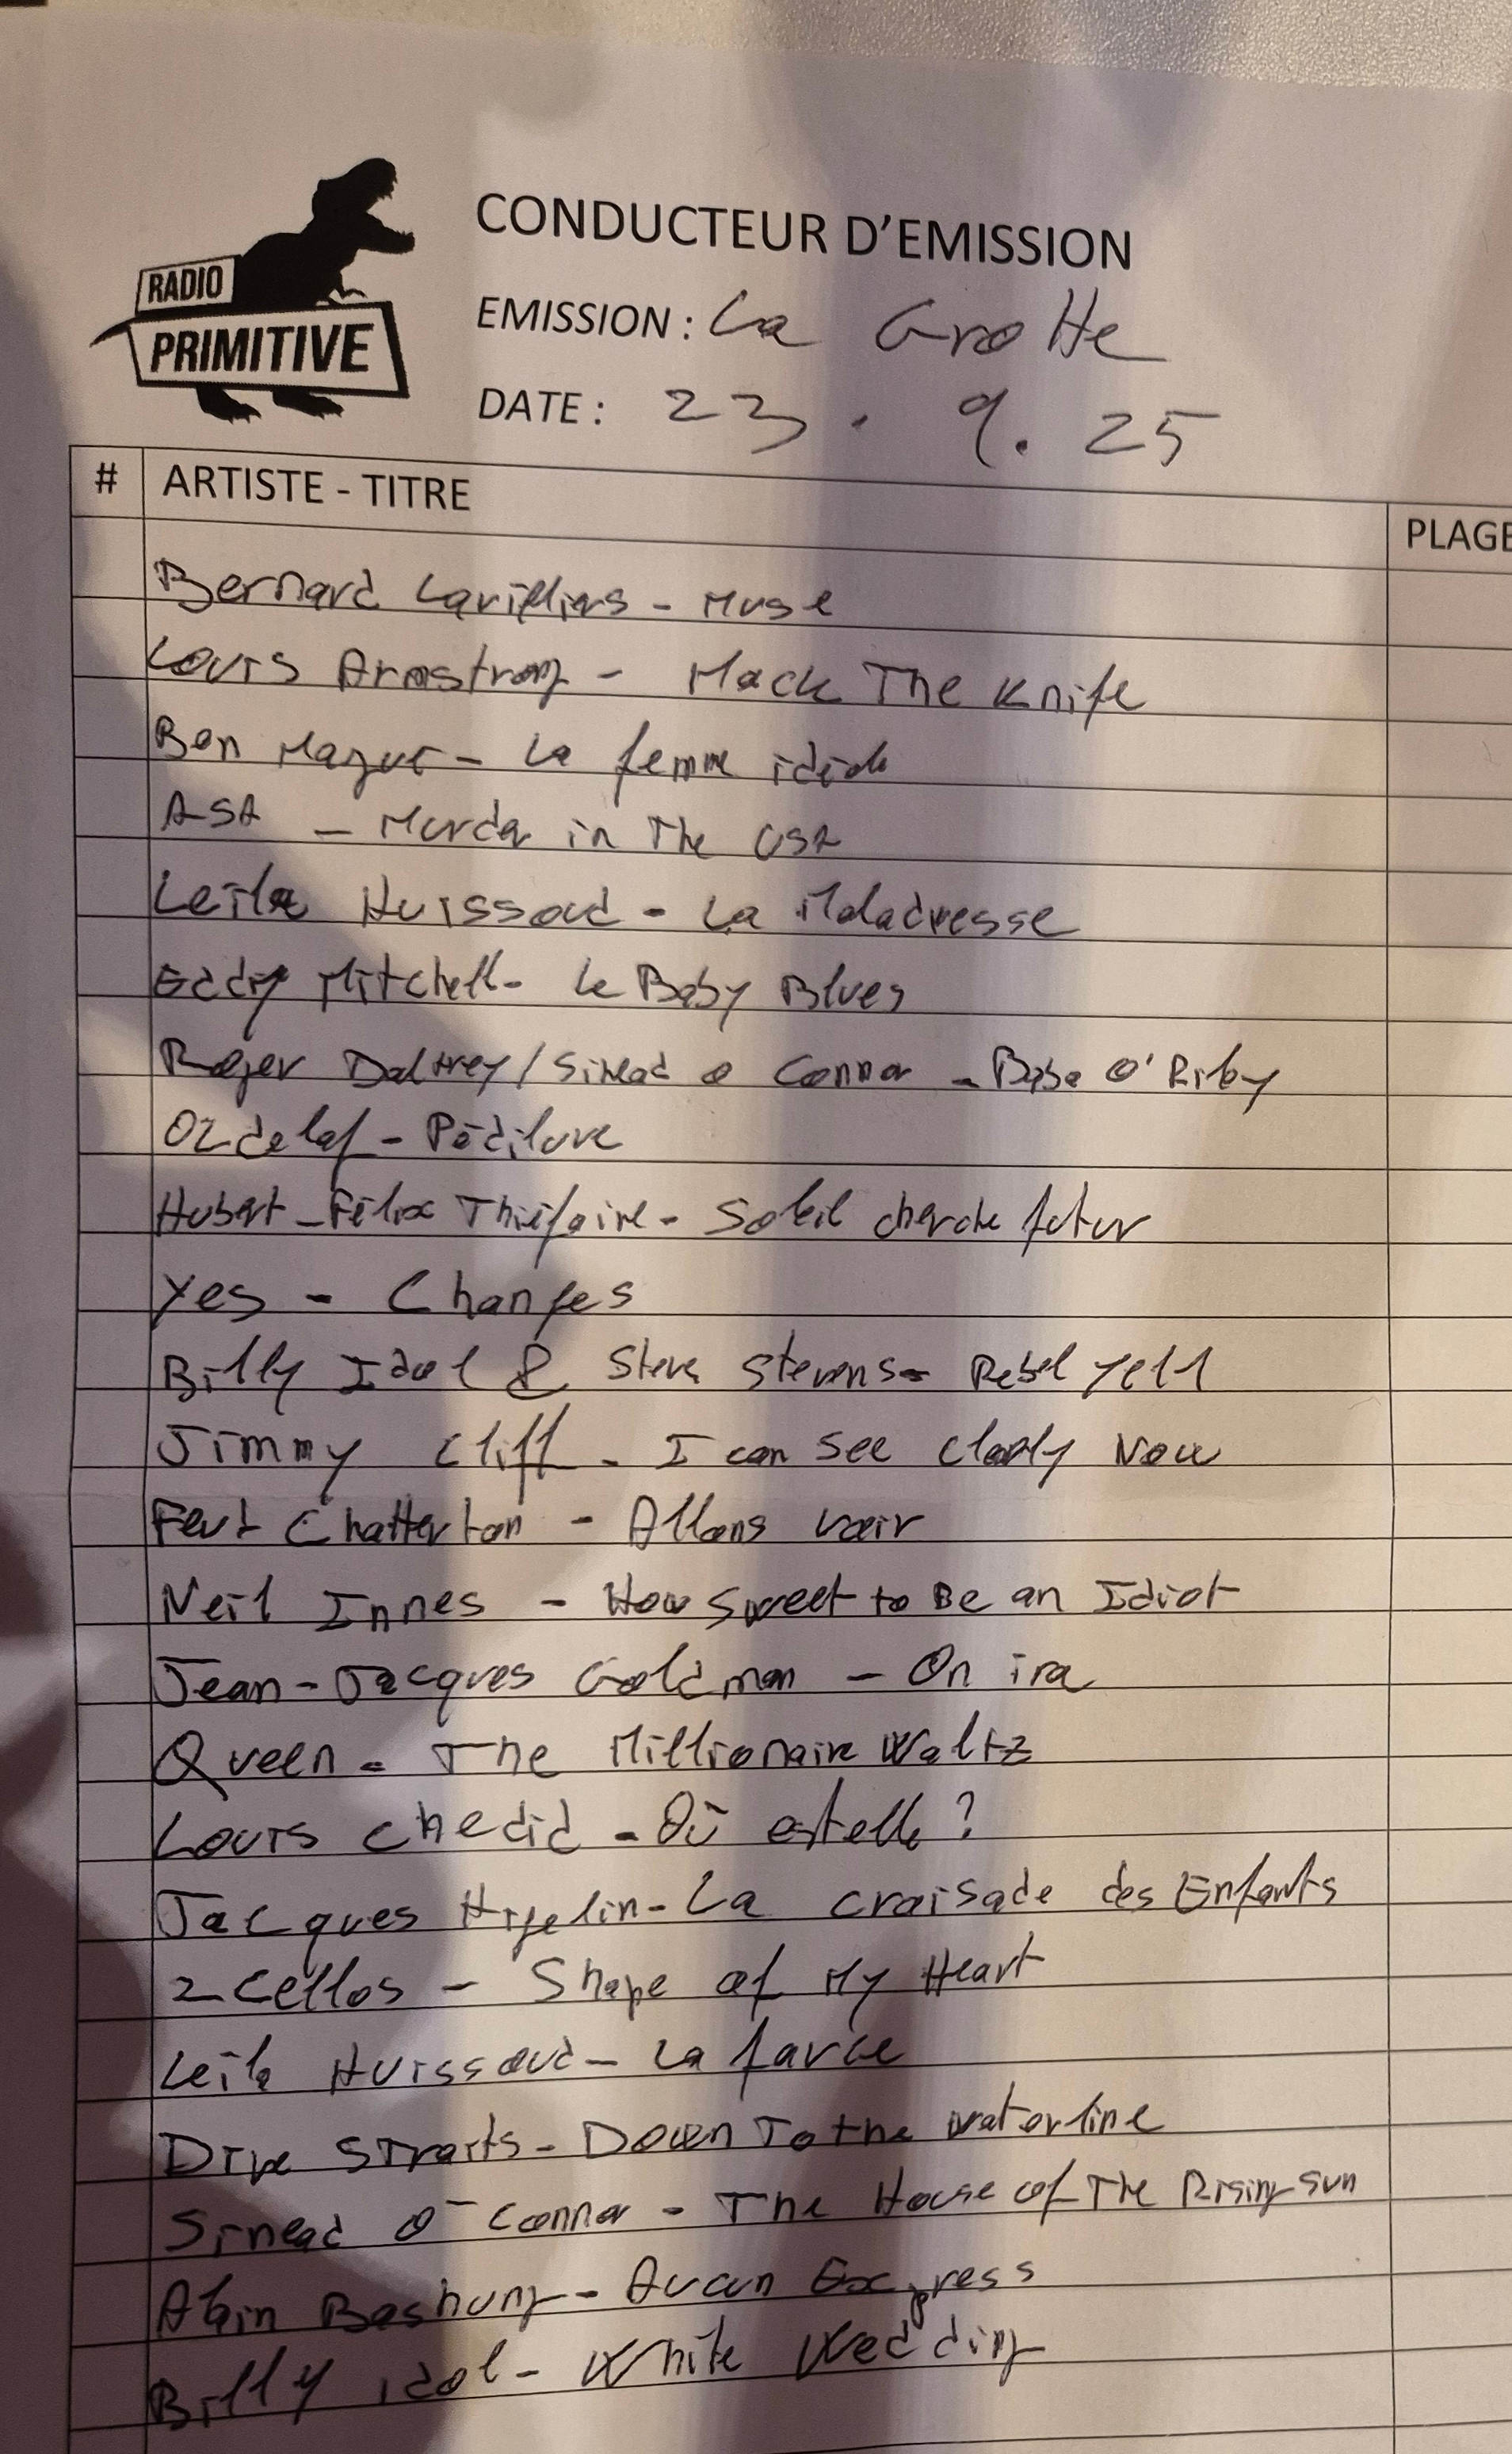 RADIO
PRIMITIVE
CONDUCTEUR D'EMISSION
EMISSION : La Grotte
DATE : 23. 9. 25
# ARTISTE - TITRE PLAGE
Bernard Lavilliers - Muse
Louis Armstrong - Mack The Knife
Ben Mazué - La femme idéale
ASA - Murder in The USA
Leïla Huissoud - La Maladresse
Eddy Mitchell - Le Baby Blues
Roger Daltrey / Sinead O Connor - Baba O'Riley
Oldelaf - Pédiluve
Hubert-Félix Thiéfaine - Soleil cherche futur
Yes - Changes
Billy Idol & Steve Stevens - Rebel Yell
Jimmy Cliff - I can see clearly Now
Feu! Chatterton - Allons voir
Neil Innes - How sweet to Be an Idiot
Jean-Jacques Goldman - On ira
Queen - The Millionaire Waltz
Louis Chedid - Où est elle ?
Jacques Higelin - La croisade des Enfants
2 Cellos - Shape of My Heart
Leïla Huissoud - La farce
Dire Straits - Down To the Waterline
Sinead O'Connor - The House of The Rising Sun
Alain Bashung - Aucun Express
Billy Idol - White Wedding